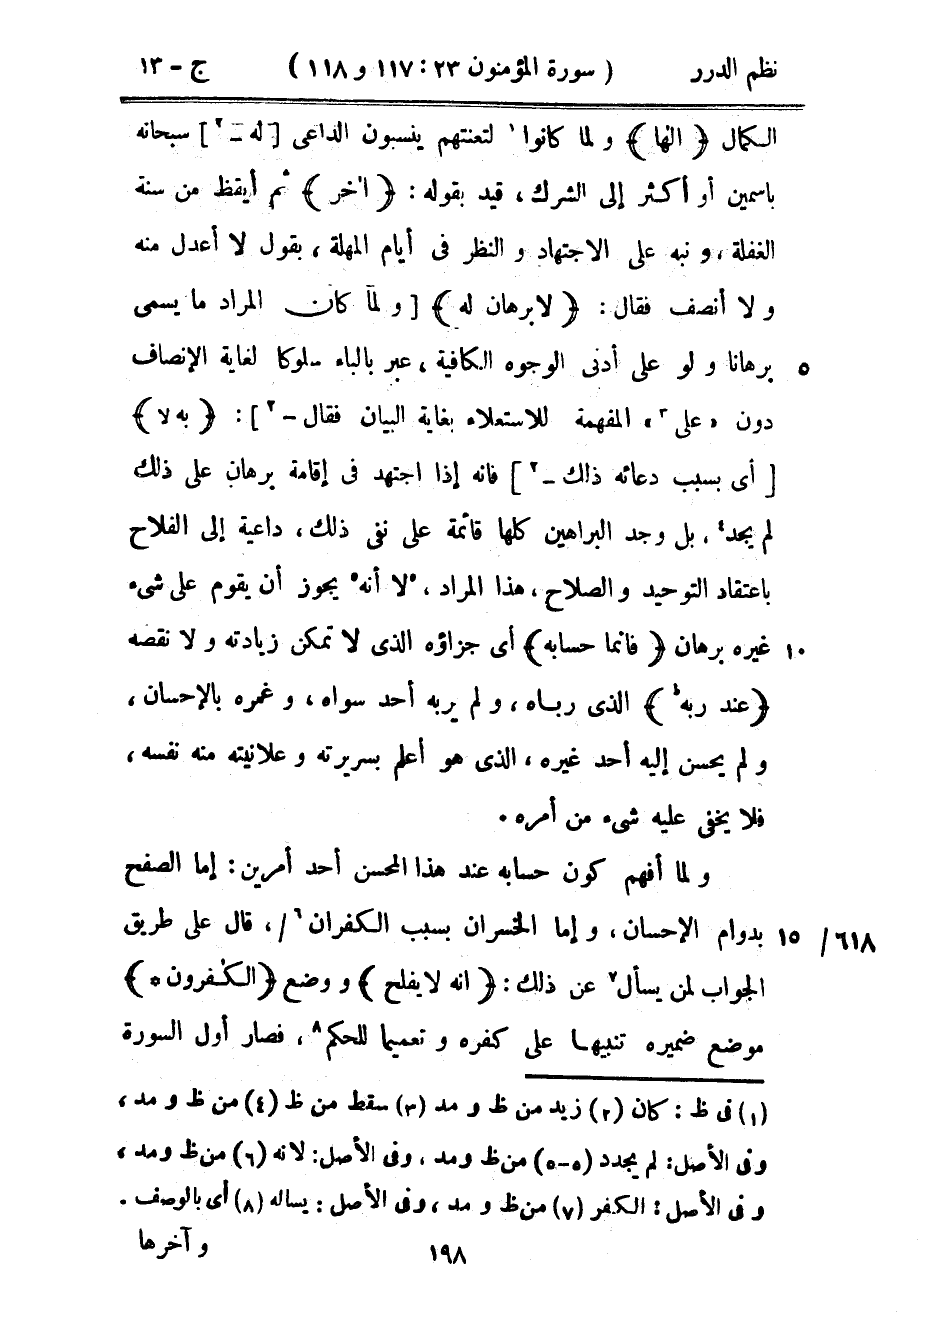 نظم الدرر ( سورة المؤمنون ٢٣ : ١١٧ و ١١٨ ) ج - ١٣
الكمال ﴿ الٰها ﴾ و لما كانوا١ لتعنتهم ينسبون الداعى [ له - ٢ ] سبحانه
باسمين أو أكثر إلى الشرك ، قيد بقوله : ﴿ اٰخر ﴾ ثم أيقظ من سنة
الغفلة ، و نبه على الاجتهاد و النظر فى أيام المهلة ، بقول لا أعدل منه
و لا أنصف فقال : ﴿ لا برهان له ﴾ [ و لمآ كان المراد ما يسمى
برهانا و لو على أدنى الوجوه الكافية ، عبر بالباء سلوكا لغاية الإنصاف ٥
دون « على٣ » المفهمة للاستعلاء بغاية البيان فقال - ٢ ] : ﴿ به لا ﴾
[ أى بسبب دعائه ذلك - ٢ ] فانه إذا اجتهد فى إقامة برهان على ذلك
لم يجد٤ ، بل وجد البراهين كلها قائمة على نفى ذلك ، داعية إلى الفلاح
باعتقاد التوحيد و الصلاح ، هذا المراد ، ٥لا أنه٥ يجوز أن يقوم على شىء
غيره برهان ﴿ فانما حسابه ﴾ أى جزاؤه الذى لا تمكن زيادته و لا نقصه ١٠
﴿ عند ربه ط ﴾ الذى رباه ، و لم يربه أحد سواه ، و غمره بالإحسان ،
و لم يحسن إليه أحد غيره ، الذى هو أعلم بسريرته و علانيته منه نفسه ،
فلا يخفى عليه شىء من أمره .
و لما أفهم كون حسابه عند هذا المحسن أحد أمرين : إما الصفح
بدوام الإحسان ، و إما الخسران بسبب الكفران٦ / ، قال على طريق ١٥ / ٦١٨
الجواب لمن يسأل٧ عن ذلك : ﴿ انه لا يفلح ﴾ و وضع ﴿ الكٰفرون ه ﴾
موضع ضميره تنبيها على كفره و تعميما للحكم٨ ، فصار أول السورة
(١) فى ظ : كان (٢) زيد من ظ و مد (٣) سقط من ظ (٤) من ظ و مد ،
و فى الأصل : لم يجدد (٥-٥) من ظ و مد ، و فى الأصل : لانه (٦) من ظ و مد ،
و فى الأصل : الكفر (٧) من ظ و مد ، و فى الأصل : يساله (٨) أى بالوصف .
١٩٨ و آخرها